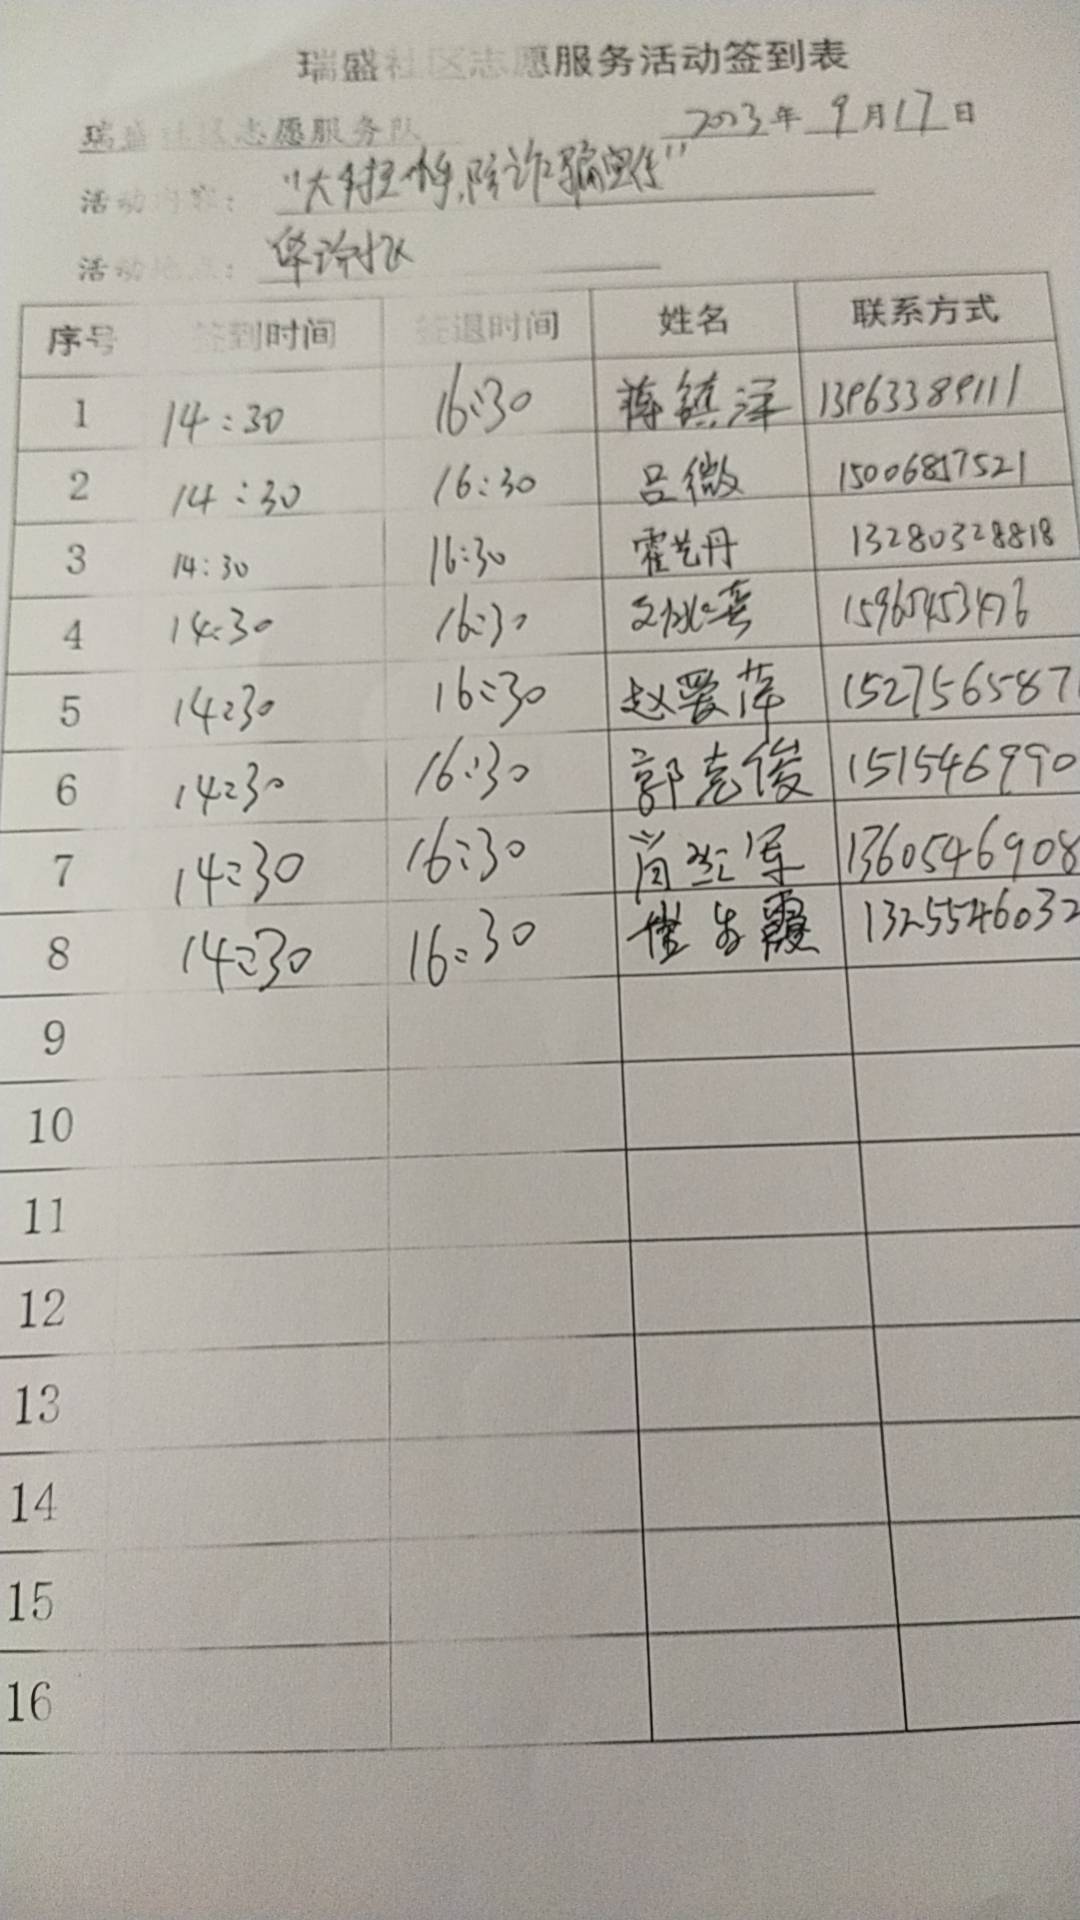 瑞盛社区志愿服务活动签到表
瑞盛社区志愿服务队 2023年 9月17日
活动内容: "大手拉小手,防诈骗宣传"
活动地点:
序号 签到时间 签退时间 姓名 联系方式
1 14:30 16:30 蒋镇泽 13963389111
2 14:30 16:30 吕微 15006857521
3 14:30 16:30 霍艺丹 13280328818
4 14:30 16:30
5 14:30 16:30 赵爱萍 1527565871
6 14:30 16:30 郭克俊 151546990
7 14:30 16:30 1360546908
8 14:30 16:30 13255546032
9
10
11
12
13
14
15
16